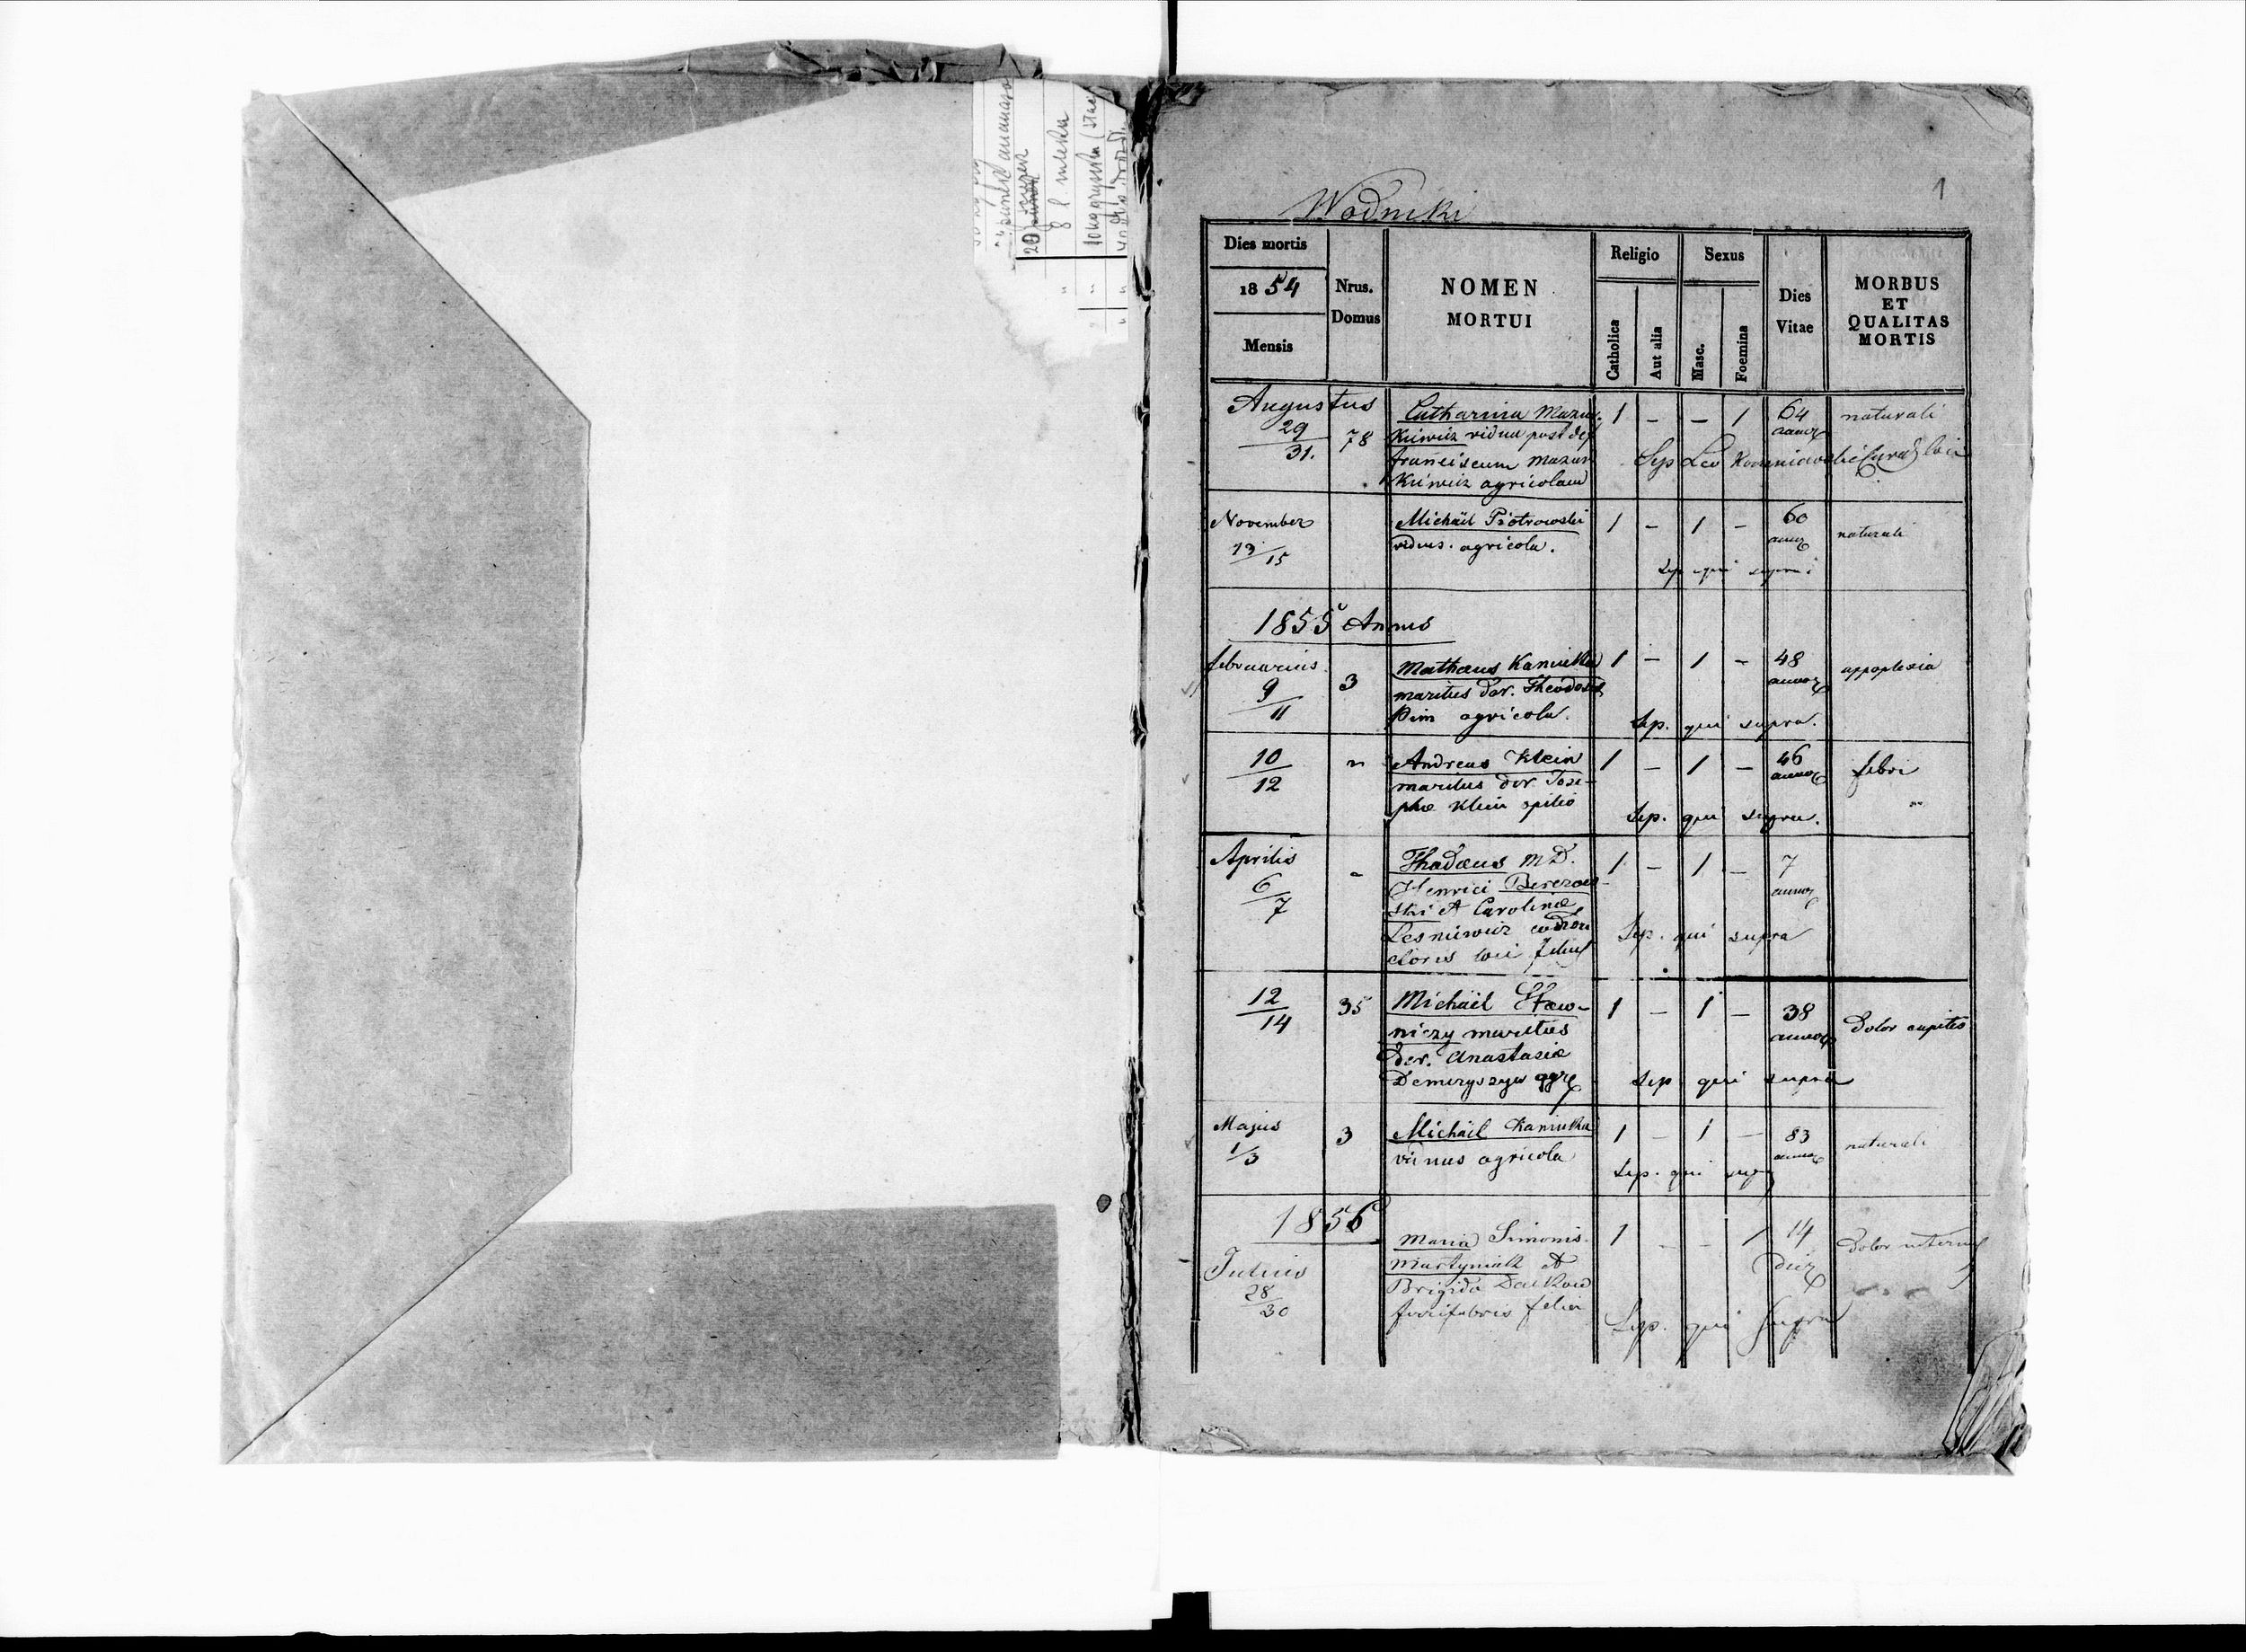 ananasa
8 l mleka
1
Wodniki
Dies mortis
1854
Mensis
Nrus.
Domus
NOMEN
MORTUI
Religio
Catholica
Aut alia
Sexus
Masc.
Foemina
Dies
Vitae
MORBUS
ET
QUALITAS
MORTIS
Augustus
29
31.
78
Catharina Mazur-
kiewicz vidua post def
franciscum Mazur
kiewicz agricolam
1 - - 1
64
annor
naturali
Sep Leo
November
13/15
Michäil Piotrowski
viduus. agricola.
1 - 1 -
60
annor
naturali
Sep qui supra
1855 Annus
februarius
9
11
3
Mathæus Kaniuka
maritus der.
agricola.
1 - 1 -
48
annor
appoplexia
Sep. qui supra.
10
12
"
Andreas Klein
maritus der Jose-
phæ Klein opilio
1 - 1 -
46
annor
febri
"
Sep. qui supra.
Aprilis
6
7
"
Thadæus M.D.
Henrici Berezow-
ski et Carolinæ
Lesniewicz
filius
1 - 1 -
7
annor
Sep. qui supra
12
14
35
Michäil Staw-
niczy maritus
der. Anastasiæ
1 - 1 -
38
annor
Dolor capitis
Sep qui supra
Majus
1/3
3
Michäil Kaniuka
viduus agricola
1 - 1 -
83
annor
naturali
Sep. qui supra
1856
Julius
28
30
Maria Simonis
Martyniuk et
Brigida
filia
1 - - 1
14
dier
Dolor internus
Sep. qui supra